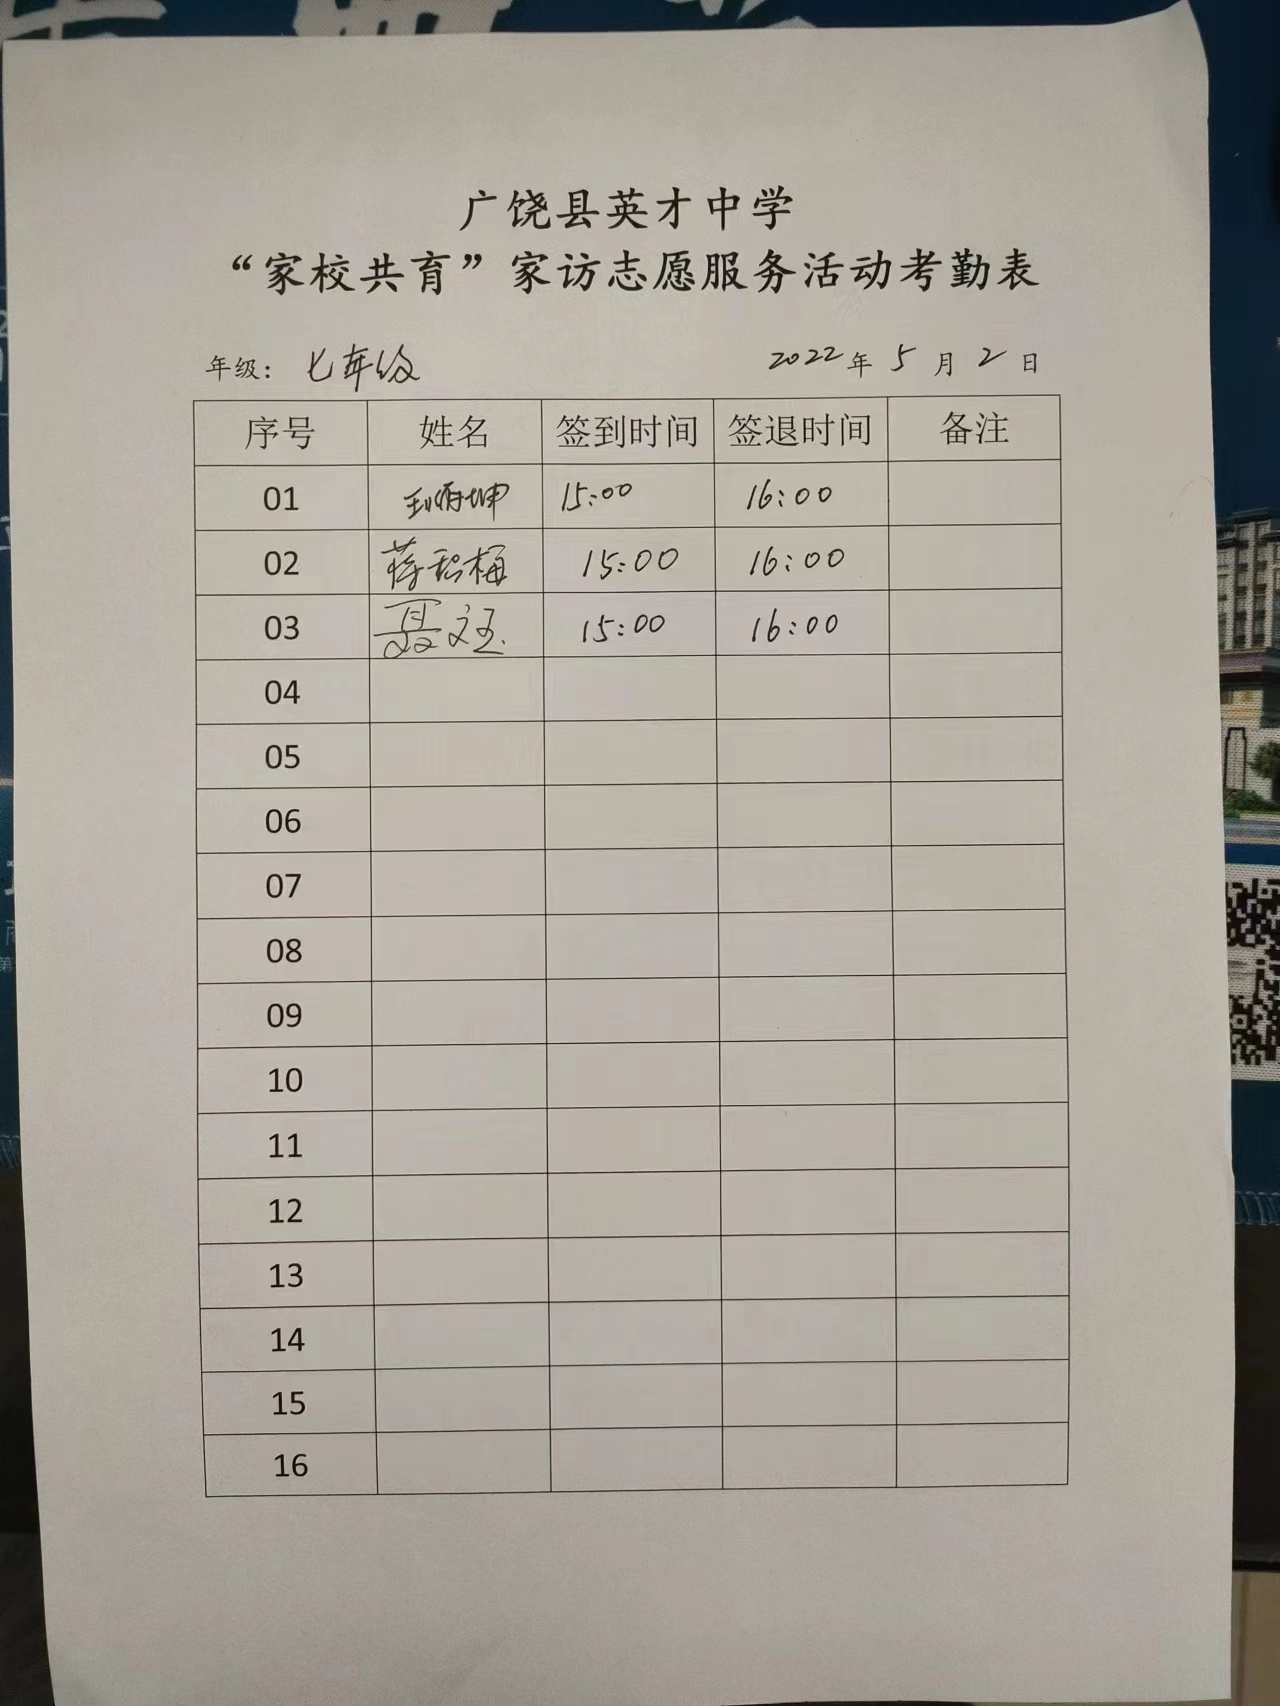 广饶县英才中学
“家校共育”家访志愿服务活动考勤表
年级： 七年级 2022年5月2日
序号 姓名 签到时间 签退时间 备注
01 坤 15:00 16:00
02 蒋 梅 15:00 16:00
03 聂文玉 15:00 16:00
04
05
06
07
08
09
10
11
12
13
14
15
16